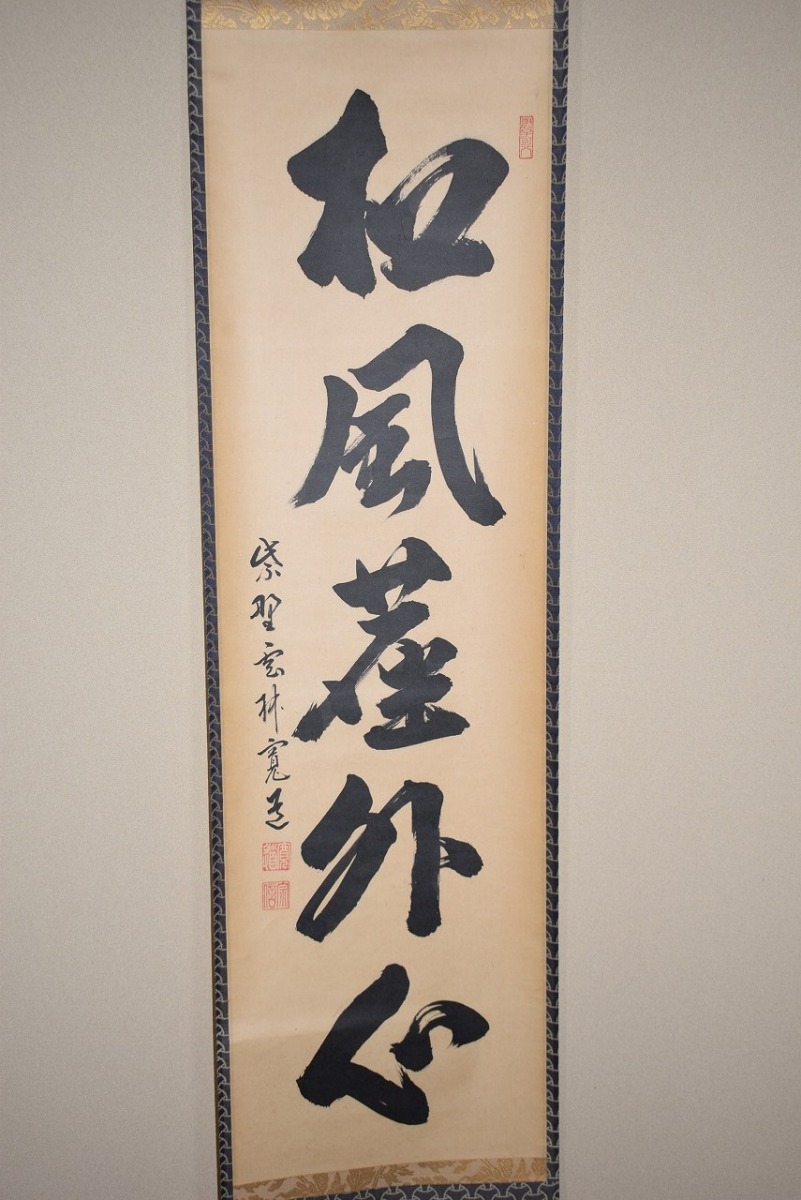 松風塵外心
紫野雲林寛道
寛道